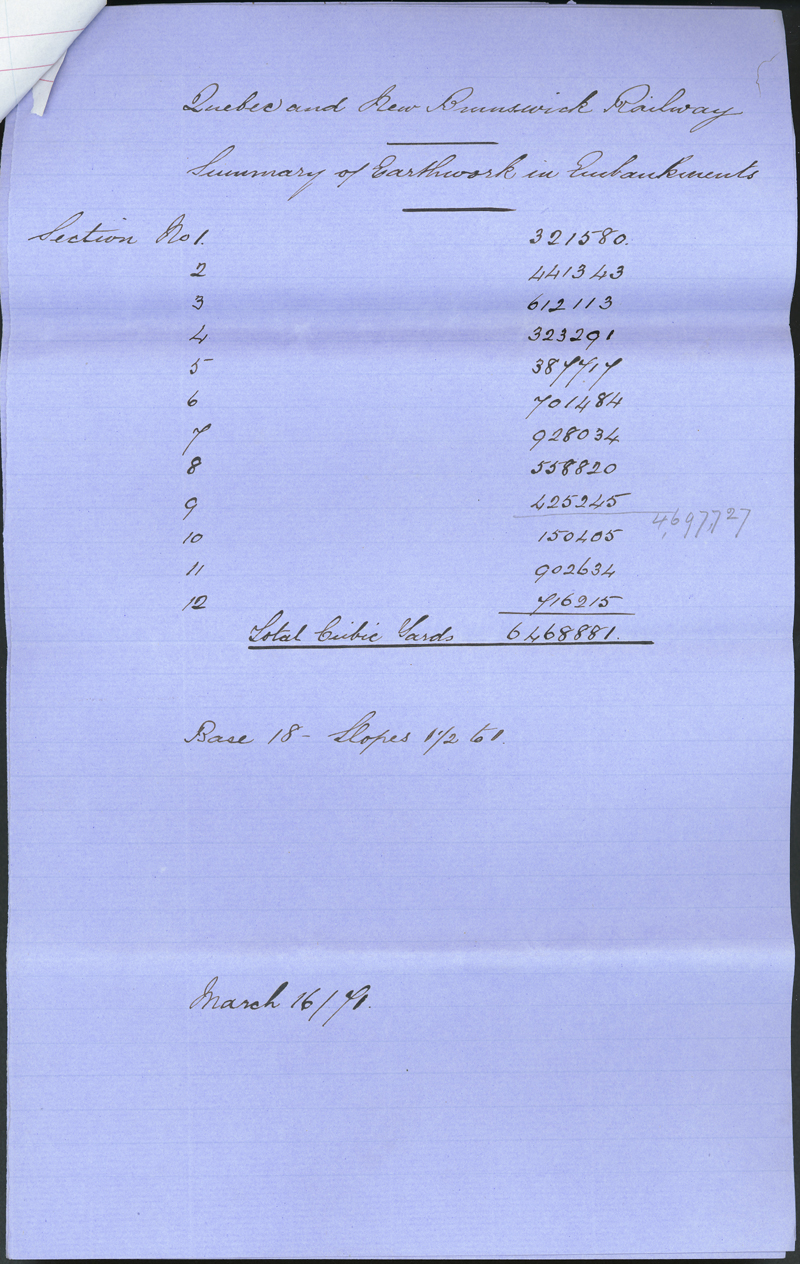 Quebec and New Brunswick Railway
Summary of Earthwork in Embankments
Section No 1. 321580.
2 441343
3 612113
4 323291
5 387717
6 701484
7 928034
8 558820
9 425245
4,697,727
10 150405
11 902634
12 716215
Total Cubic Yards 6468881.
Base 18 - Slopes 1 1/2 to 1.
March 16/71.